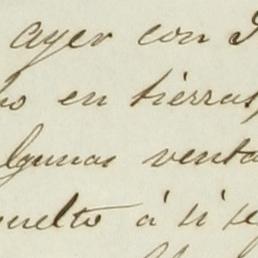 ayer con
en tierras,
algunas venta
vuelto á si se